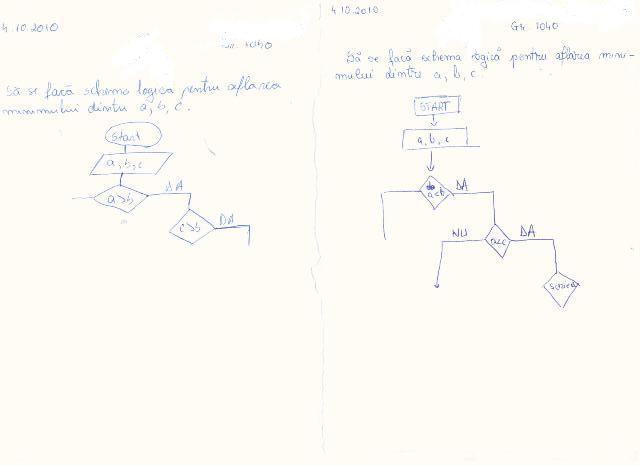 4.10.2010
Gr. 1040
Să se facă schema logica pentru aflarea
minimului dintre a, b, c.
Start
a, b, c
a>b
DA
c>b
DA
4.10.2010
Gr. 1040
Să se facă schema logică pentru aflarea mini-
mului dintre a, b, c.
START
a, b, c
a<b
DA
NU
a<c
DA